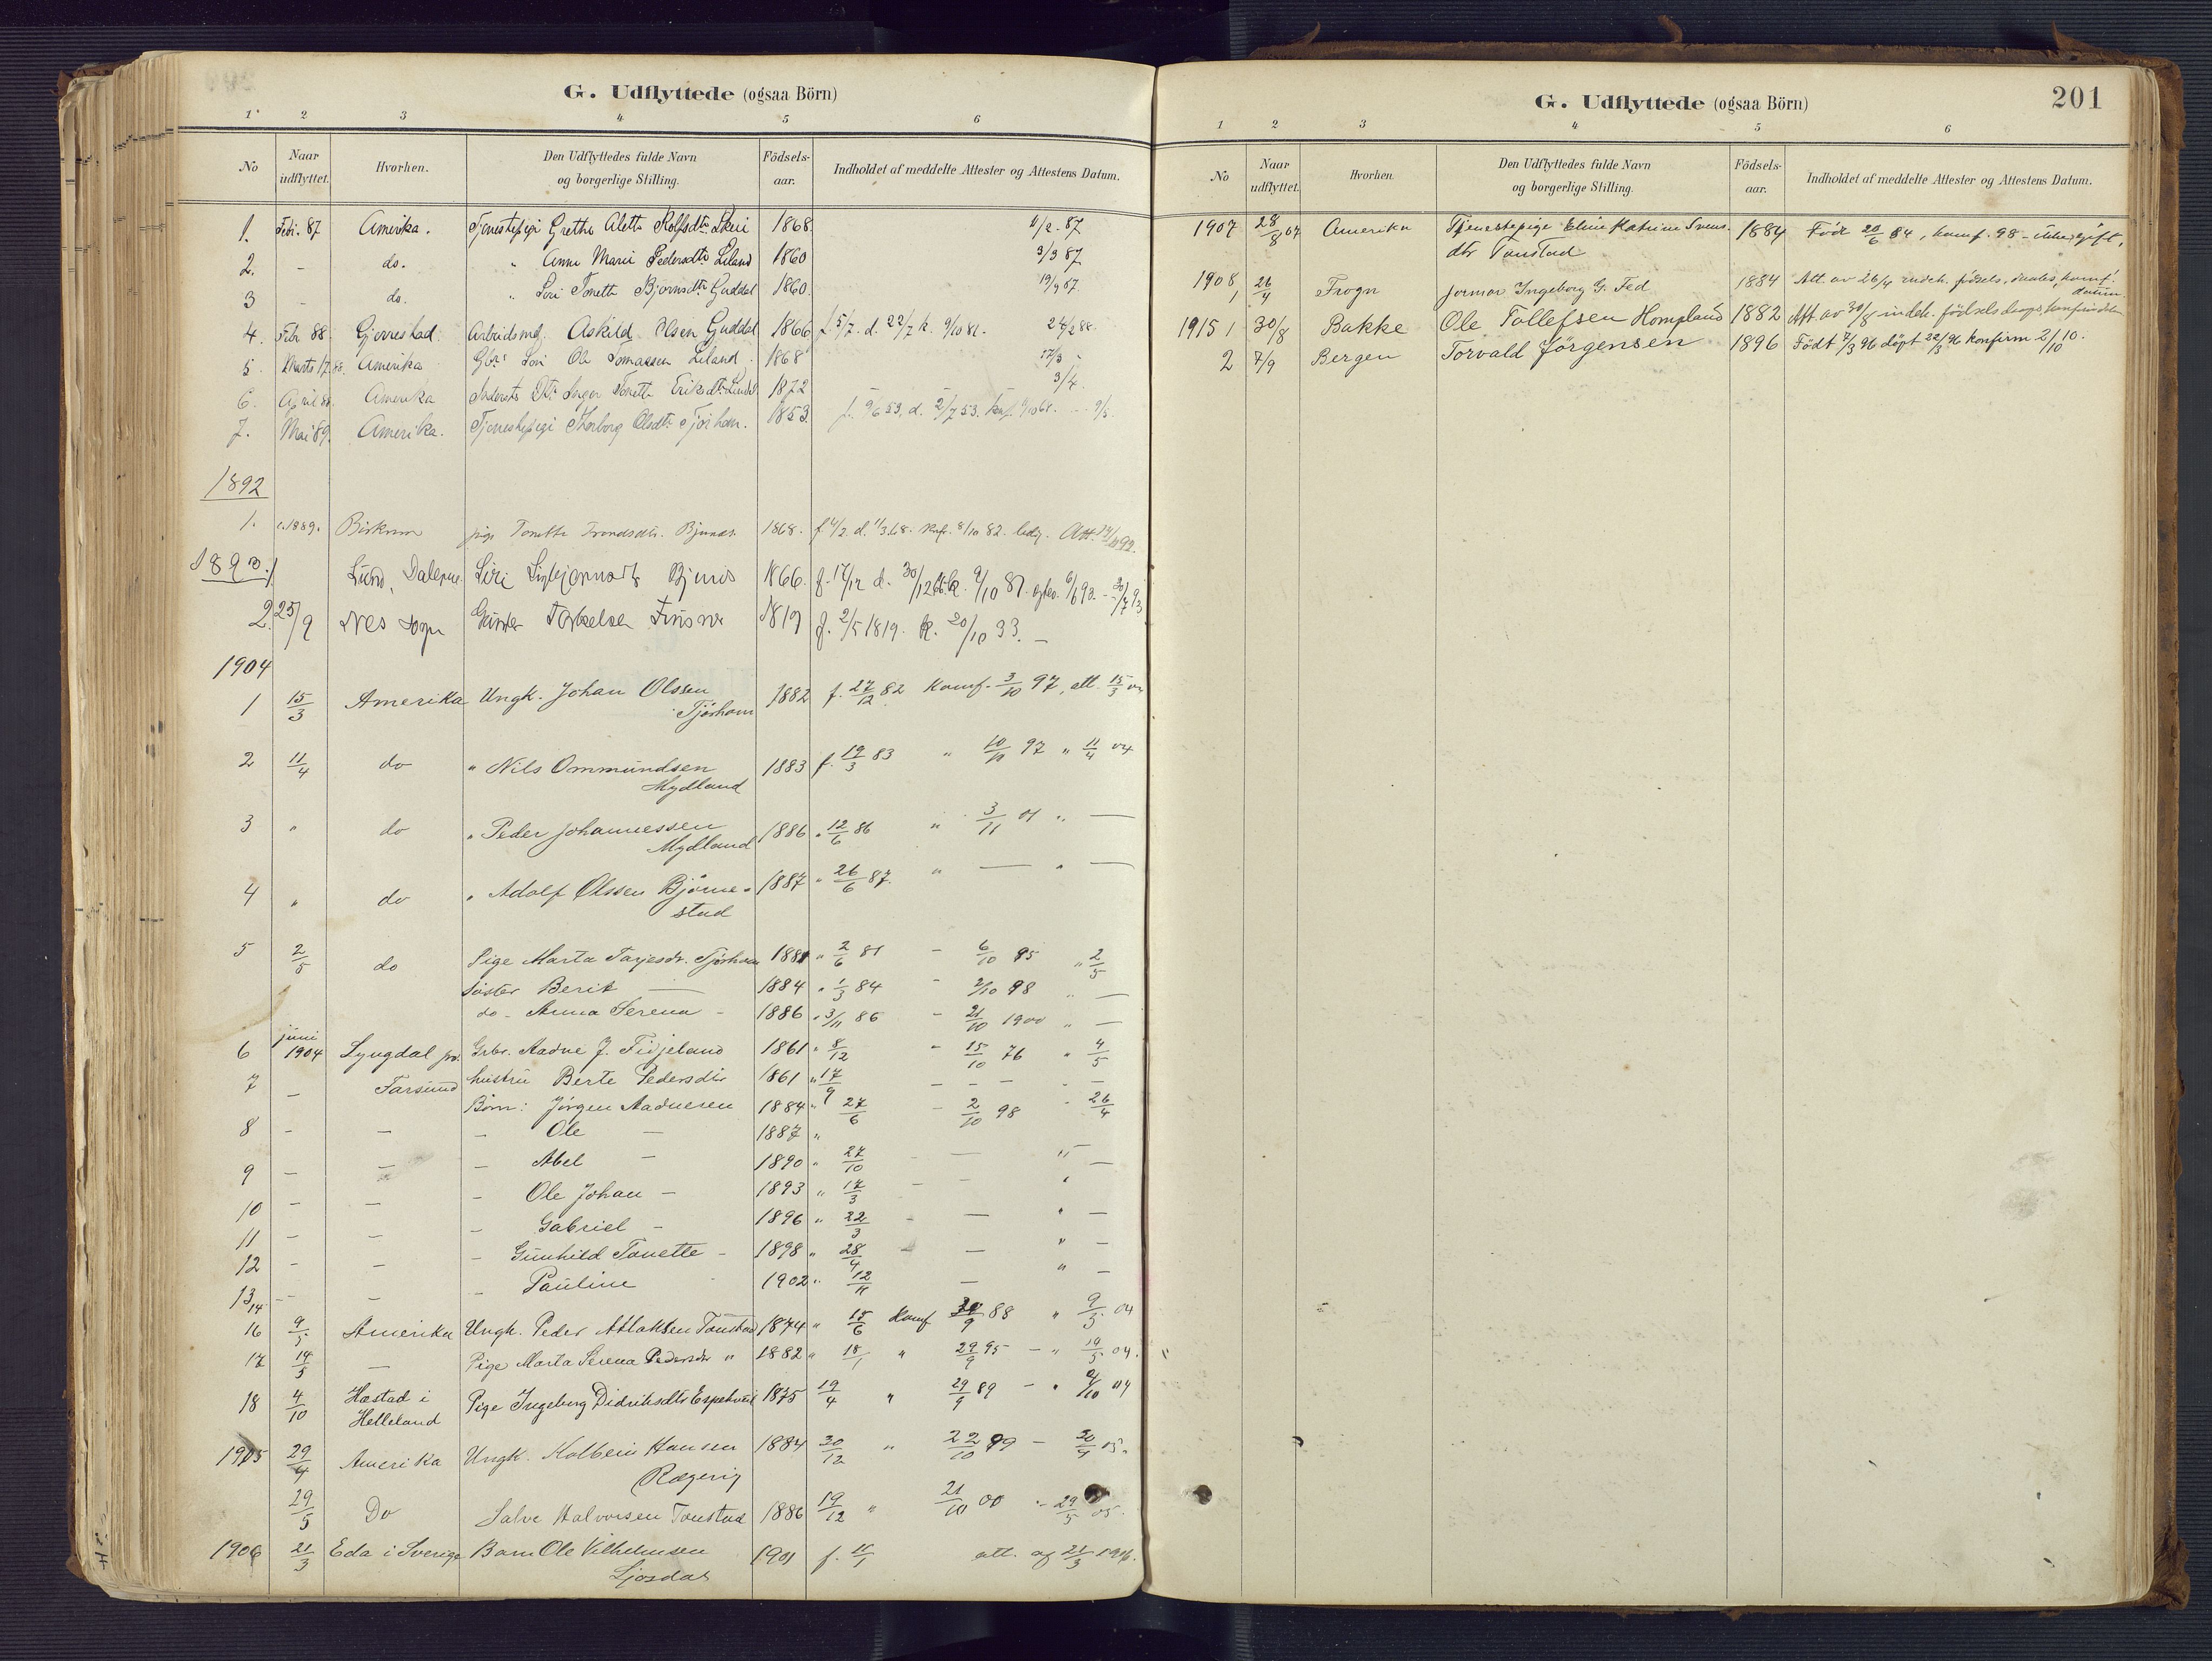 G. Udflyttede (ogsaa Börn)
1 2 3 4 5 6
No Naar udflyttet. Hvorhen. Den Udflyttedes fulde Navn og borgerlige Stilling. Födsels-aar. Indholdet af meddelte Attester og Attestens Datum.
1. Febr. 87 Amerika. Tjenestepige Grethe Alette Rolfsdtr. Skeie 1868. 11/2. 87
2. - do. " Anne Marie Pedersdtr. Liland 1860 3/3 87
3 - do. " Siri Tonette Bjørnsdtr. Guddal 1860. 19/4 87.
4. Febr 88. Gjerrestad. Arbeidsmd. Askild Olsen Guddal 1866 f. 5/7. d. 22/7 k. 9/10 81. 24/2 88.
5. Marts 17. 88. Amerika Gbr. Søn Ole Tomassen Liland. 1868 17/3 -
6. April 88. Amerika Inderste Dtr. Inger Tonette Eriksdtr. 1872 3/4.
7. Mai 89. Amerika. Tjenestepige Thorborg Olsdtr. Tjørhom. 1853. f. 9/6 53, d. 2/7 53. knf. 9/10 68. - 9/5.
1892
1. c. 1889. Birkrem pige Tonette Trondsdtr. 1868. f 4/2. d. 1/3.68. Knf. 8/10 82. ledig. Att. 92.
1893. 1 Lund, Dalerne Siri 1866. f. 17/12 d. 30/12 66. k. 9/10 81. 6/6 93. - 20/7 93
2. 25/9 Nes Sogn 1819 f. 2/5 1819. k. 20/10 33. -
1904
1 15/3 Amerika Ungk. Johan Olssen 1882 f. 27/12 82 Konf. 3/10 97, att. 15/3 04
Tjörhom
2 11/4 do " Nils Ommundsen 1883 f. 19/3 83 " 10/10 97 " 11/4 04
Mydland
3 " do " Peder Johannessen 1886 " 12/6 86 " 3/11 01 " —
Mydland
4 " do " Adolf Olssen Björne- 1887 " 26/6 87. " — " —
stad
5 2/5 do Pige Marta Tarjesdr. Tjørhom 1881 " 2/6 81 - 6/10 95 " 2/5
Søster Berit — 1884 " 1/3 84 - 2/10 98 " —
do - Anna Serena - 1886 " 3/11 86 - 21/10 1900 " —
6 juni 1904 Lyngdal pr. Grbr. Aadne J. Fidjeland 1861 " 8/12 - 15/10 76 " 4/5
7 - Farsund hustru Berte Pedersdtr 1861 " 17/9 - - - - -
Børn: Jørgen Aadnesen 1884 " 27/6 - 2/10 98 - 26/4
8 - - - Ole - 1887 "
9 - - - Abel - 1890 " 27/10 - — " —
10 - - - Ole Johan - 1893 " 17/3 - - "
11 - - - Gabriel - 1896 " 22/3 - — " —
12 - - - Gunhild Tonette - 1898 " 28/4 - — " -
13 14 - - - Pauline 1902 " 12/11 — " -
16 9/5 Amerika Ungk. Peder Atlaksen Tonstad 1874 " 15/6 Konf 30/9 88 " 9/5 04
17 14/5 — Pige Marta Serena Pedersdtr " 1882 " 18/1 " 29/9 95 - " 14/5 04.
18 4/10 Hæstad i Helleland Pige Ingeborg Didriksdtr 1875 19/4 " 29/9 89 - " 4/10 04
1905 29/4 Amerika Ungk. Kolbein Hansen 1884 30/12 " 22/10 99 - 30/4 05.
Rægevig
29/5 Do Salve Halvorsen Tonstad 1886 19/12 " 21/10 00 - 29/5 05.
1906 21/3 Eda i Sverige Barn Ole Vilhelmsen 1901 f. 11/1 att. af 21/3 1906.
Ljosdal
G. Udflyttede (ogsaa Börn) 201
1 2 3 4 5 6
No Naar udflyttet. Hvorhen Den Udflyttedes fulde Navn og borgerlige Stilling. Födsels-aar. Indholdet af meddelte Attester og Attestens Datum.
1907 28/8 07 Amerika Tjenestepige Eline Katrine Svens- 1884 Född 20/6 84, konf. 98 - ikke gift,
dtr Tonstad
1908, 1 26/4 Frogn jormor Ingeborg G. Fed 1884 Att. av 26/4 indeh. fødsels, daabs, konf.
datum
1915 1 30/8 Bakke Ole Tollefsen Hompland 1882 Att. av 30/8 indeh. födsels
2 7/9 Bergen Torvald Jörgensen 1896 Födt 7/3 96 döpt 22/3 96 konfirm 2/10 10.